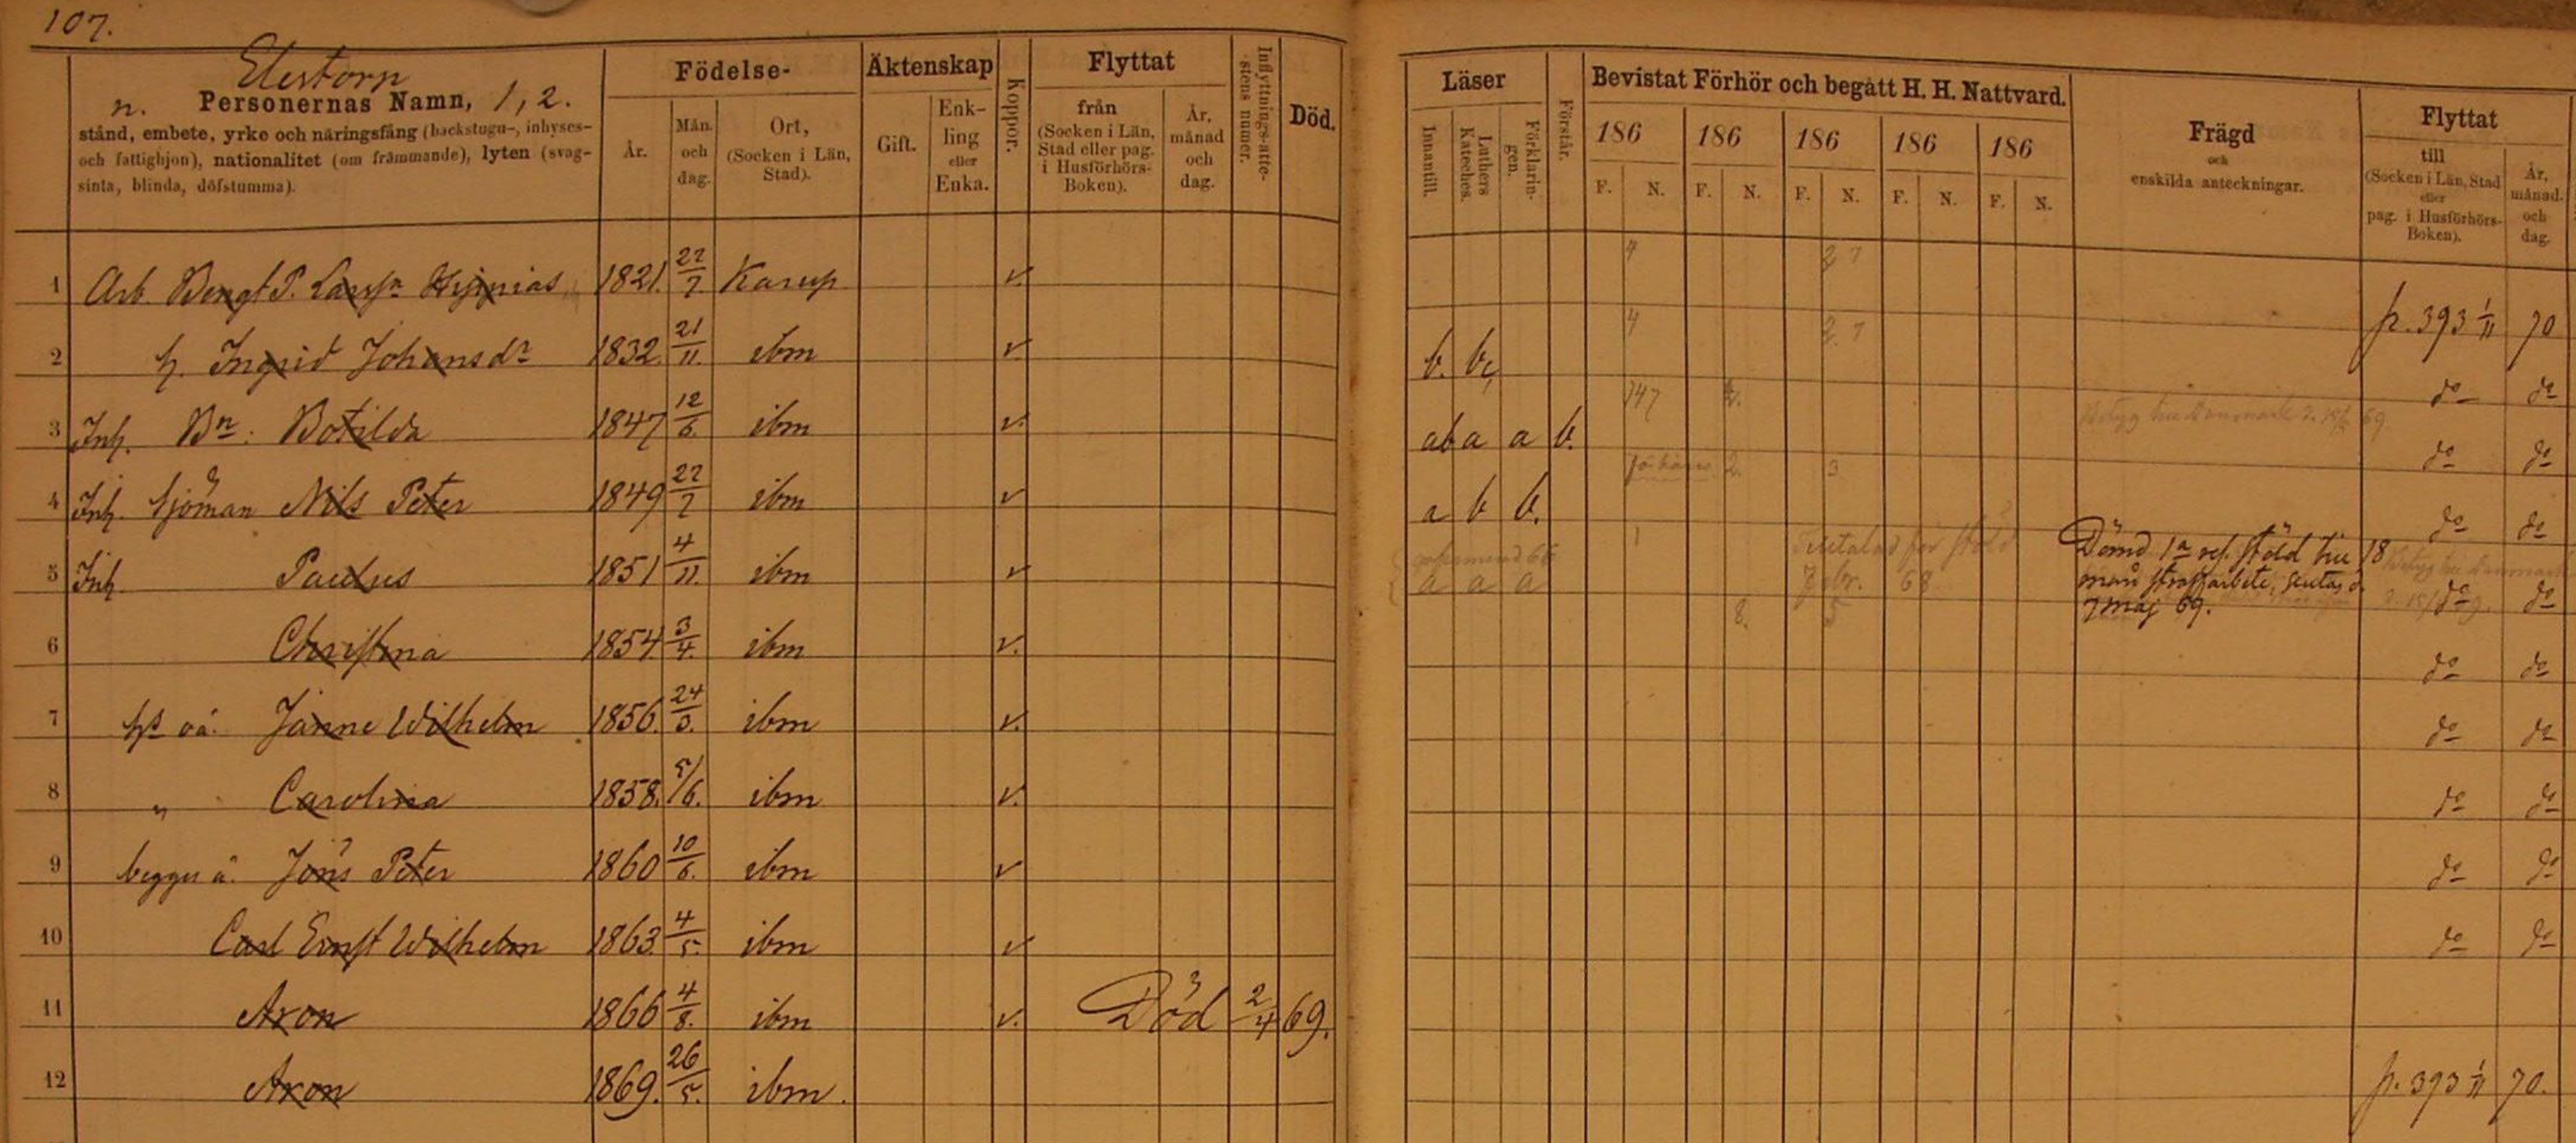 107.
Elestorp
n. Personernas Namn, 1, 2.
stånd, embete, yrke och näringsfång (backstugu-, inhyses-
och fattighjon), nationalitet (om främmande), lyten (svag-
sinta, blinda, döfstumma).
Födelse-
År.
Mån.
och
dag.
Ort,
(Socken i Län,
Stad).
Äktenskap
Gift.
Enk-
ling
eller
Enka.
Koppor.
Flyttat
från
(Socken i Län,
Stad eller pag.
i Husförhörs-
Boken).
År,
månad
och
dag.
Inflyttnings-atte-
stens numer.
Död.
Läser
Innantill.
Luthers
Kateches.
Förklarin-
gen.
Förstår.
Bevistat Förhör och begått H. H. Nattvard.
186 186 186 186 186
F. N. F. N. F. N. F. N. F. N.
Frägd
och
enskilda anteckningar.
Flyttat
till
(Socken i Län, Stad
eller
pag. i Husförhörs-
Boken).
År,
månad.
och
dag.
1 Arb Bengt P. Larssn 1821. 22/7. Karup v. 4 2 7 p. 393 1/11 70
2 h. Ingrid Johansdr 1832. 21/11. ibm v. b. b 4 2 7 do do
3 Inh. Bn: Botilda 1847 12/6. ibm v. ab a a b. 147 do do
4 Inh. Sjöman Nils Peter 1849 22/7 ibm v a b b. 2. 3 do do
5 Inh Paulus 1851 4/11. ibm v a a a 1 Tilltalad för stöld
Febr. 68
Dömd 1a res. stöld till 18
mån straffarbete,
7 maj 69. do do
6 Christina 1854 3/4. ibm v. 8. 5 do do
7 Janne Wilhelm 1856. 24/3. ibm v. do do
8 " Carolina 1858. 5/6. ibm v. do do
9 Jöns Peter 1860 10/6. ibm v do do
10 Carl Ernst Wilhelm 1863. 4/5. ibm v do do
11 Axon 1866 4/8. ibm v. Död 2/4 69.
12 Axon 1869. 26/5. ibm. p. 393 1/11 70.